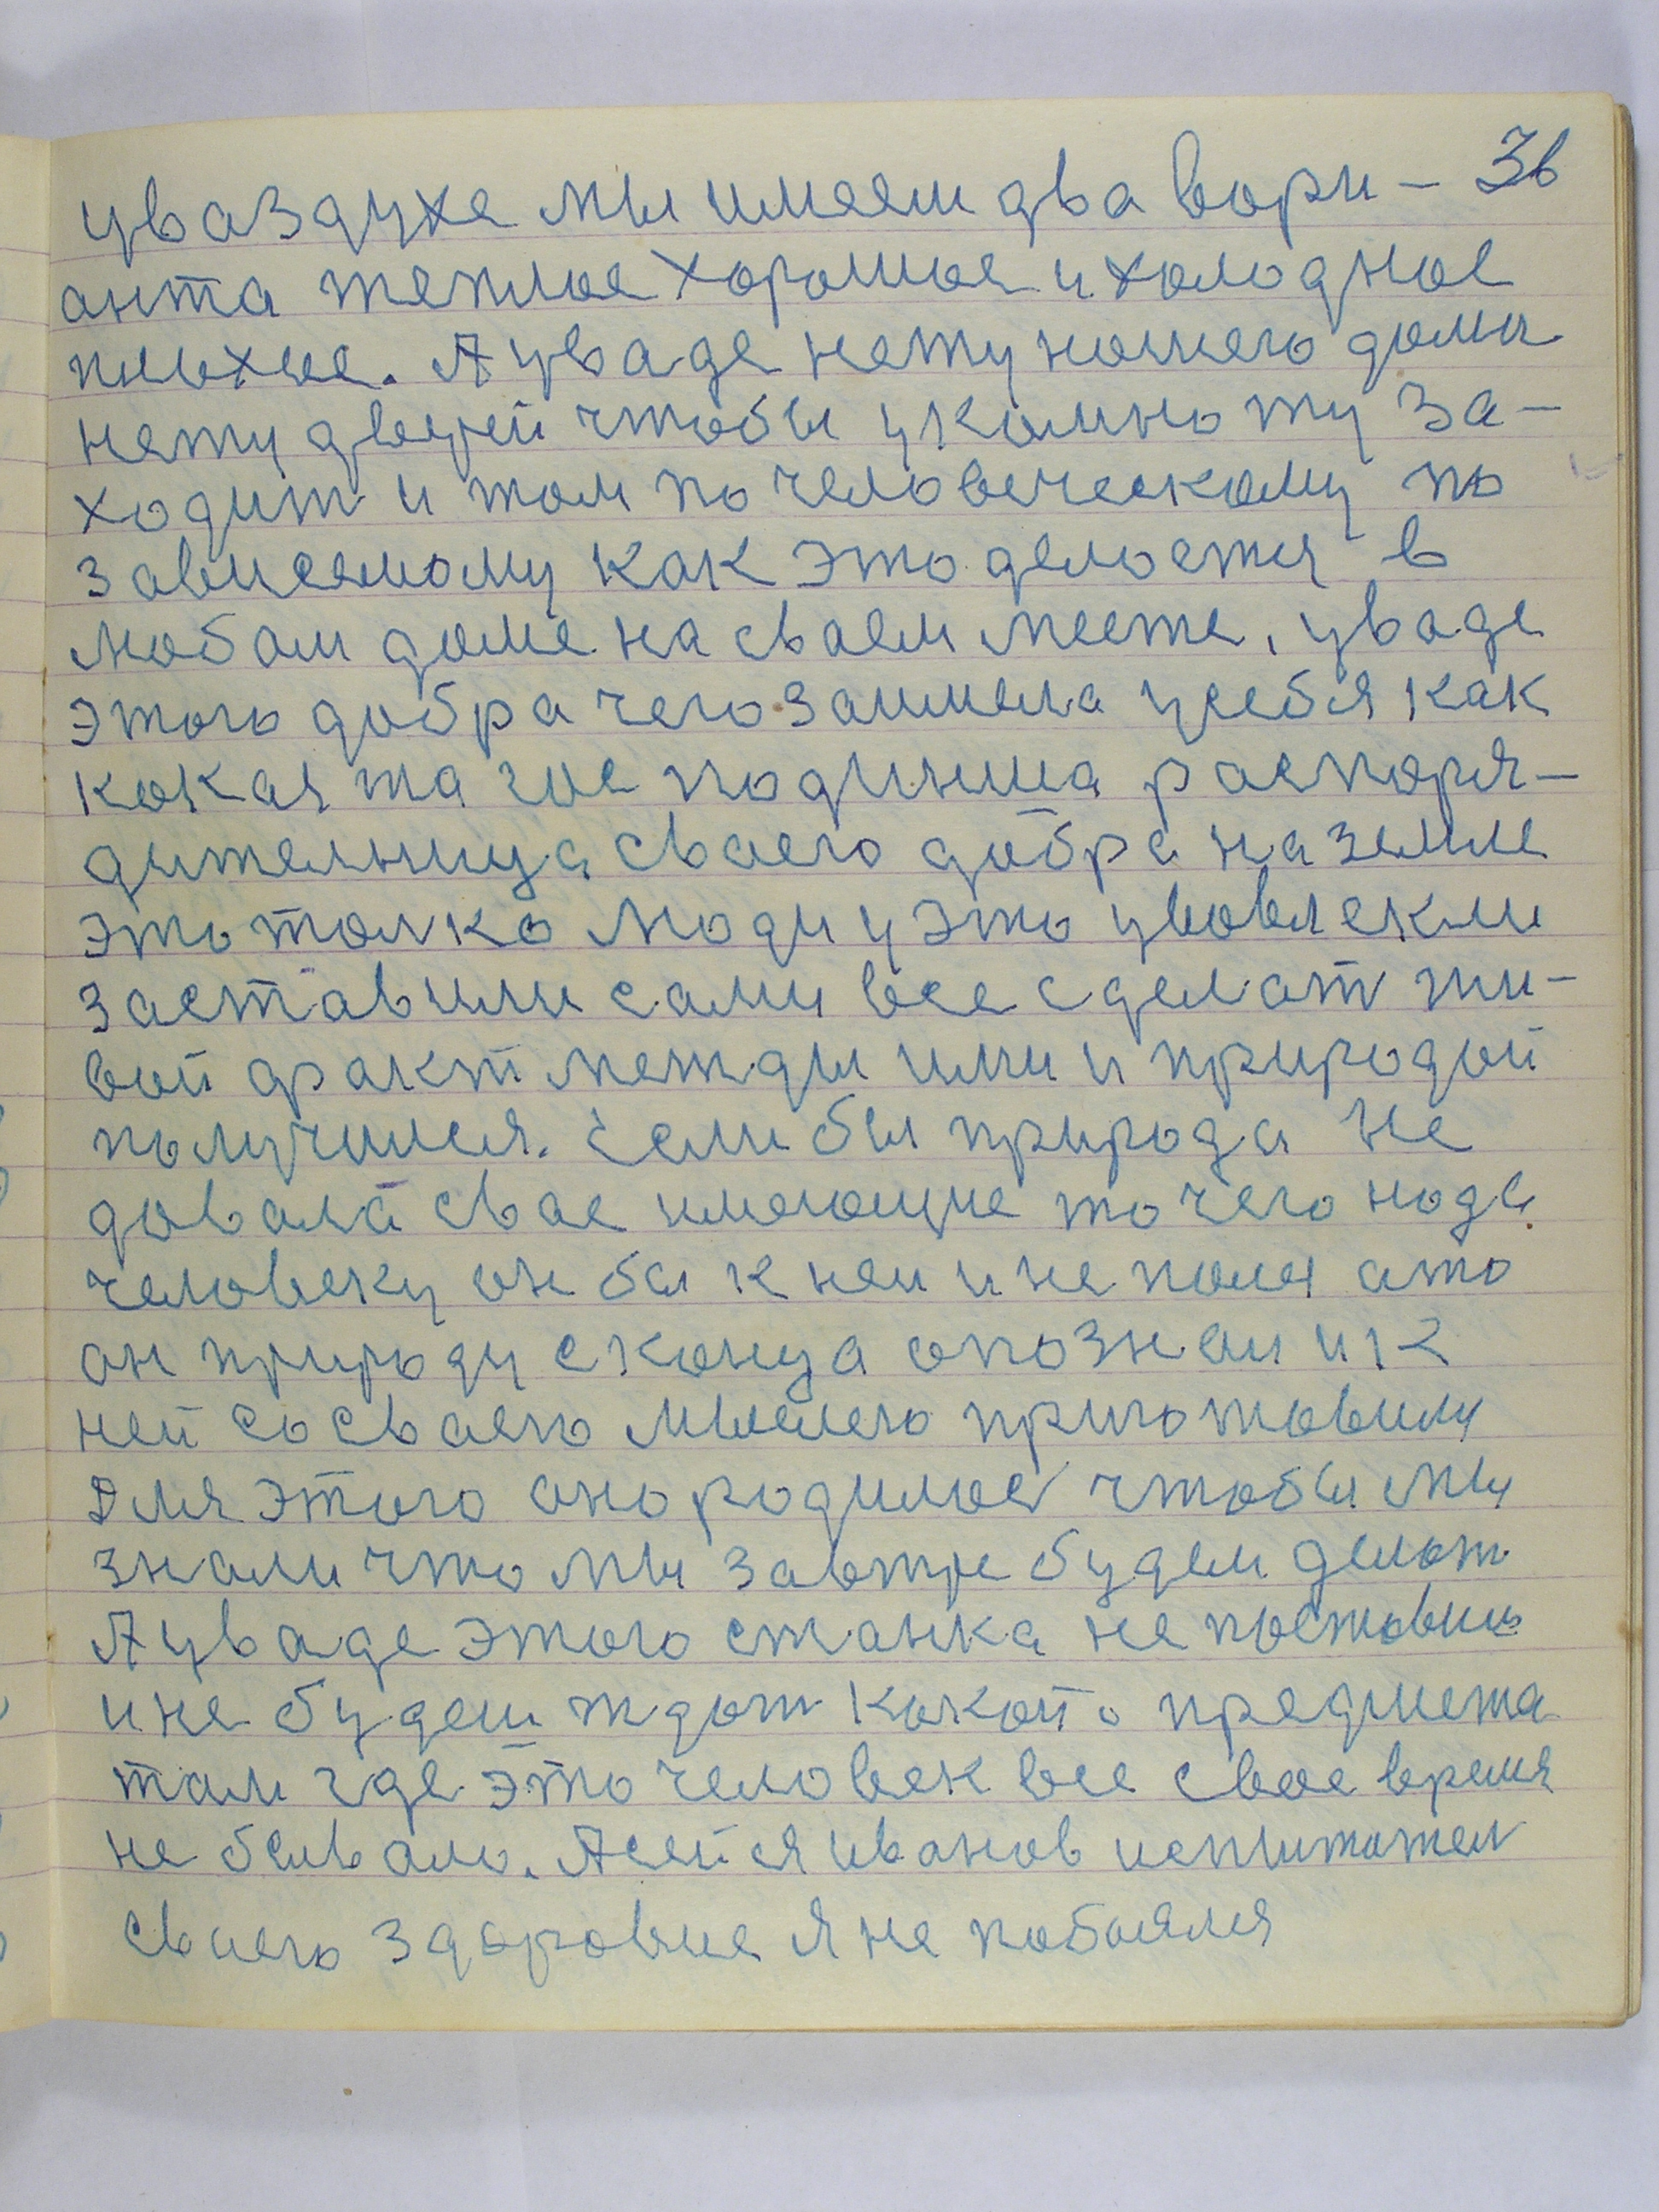 36
у ваздухе мы имеем два вари-
анта теплое хорошое и холодное
плохое. А у ваде нету нашего дома
нету дверей чтобы у комноту за-
ходит и там по человеческому по
зависемому как это делоетя в
любом доме на сваем месте, у ваде
этого добра чего заимела у себя как
кокая та гос подинша распоря-
дительница сваего добра на земле
это толко люди у это увовлекли
заставили сами все сделат жи-
вой факт межды ими и природой
получился. Если бы природа не
довала свае имеющие то чего нада
человеку он бы к неи и не полез ато
он природу с конца опознал и к
ней со сваего мыслего приготовилы
Для этого оно родилос чтобы мы
знали что мы завтре будем делат
А у ваде этого станка не поставиш
и не будеш ждат какойто предмета
там где это человек все свое время
не бывало. А сейся иванов испитател
сваего здоровие Я не побоялся